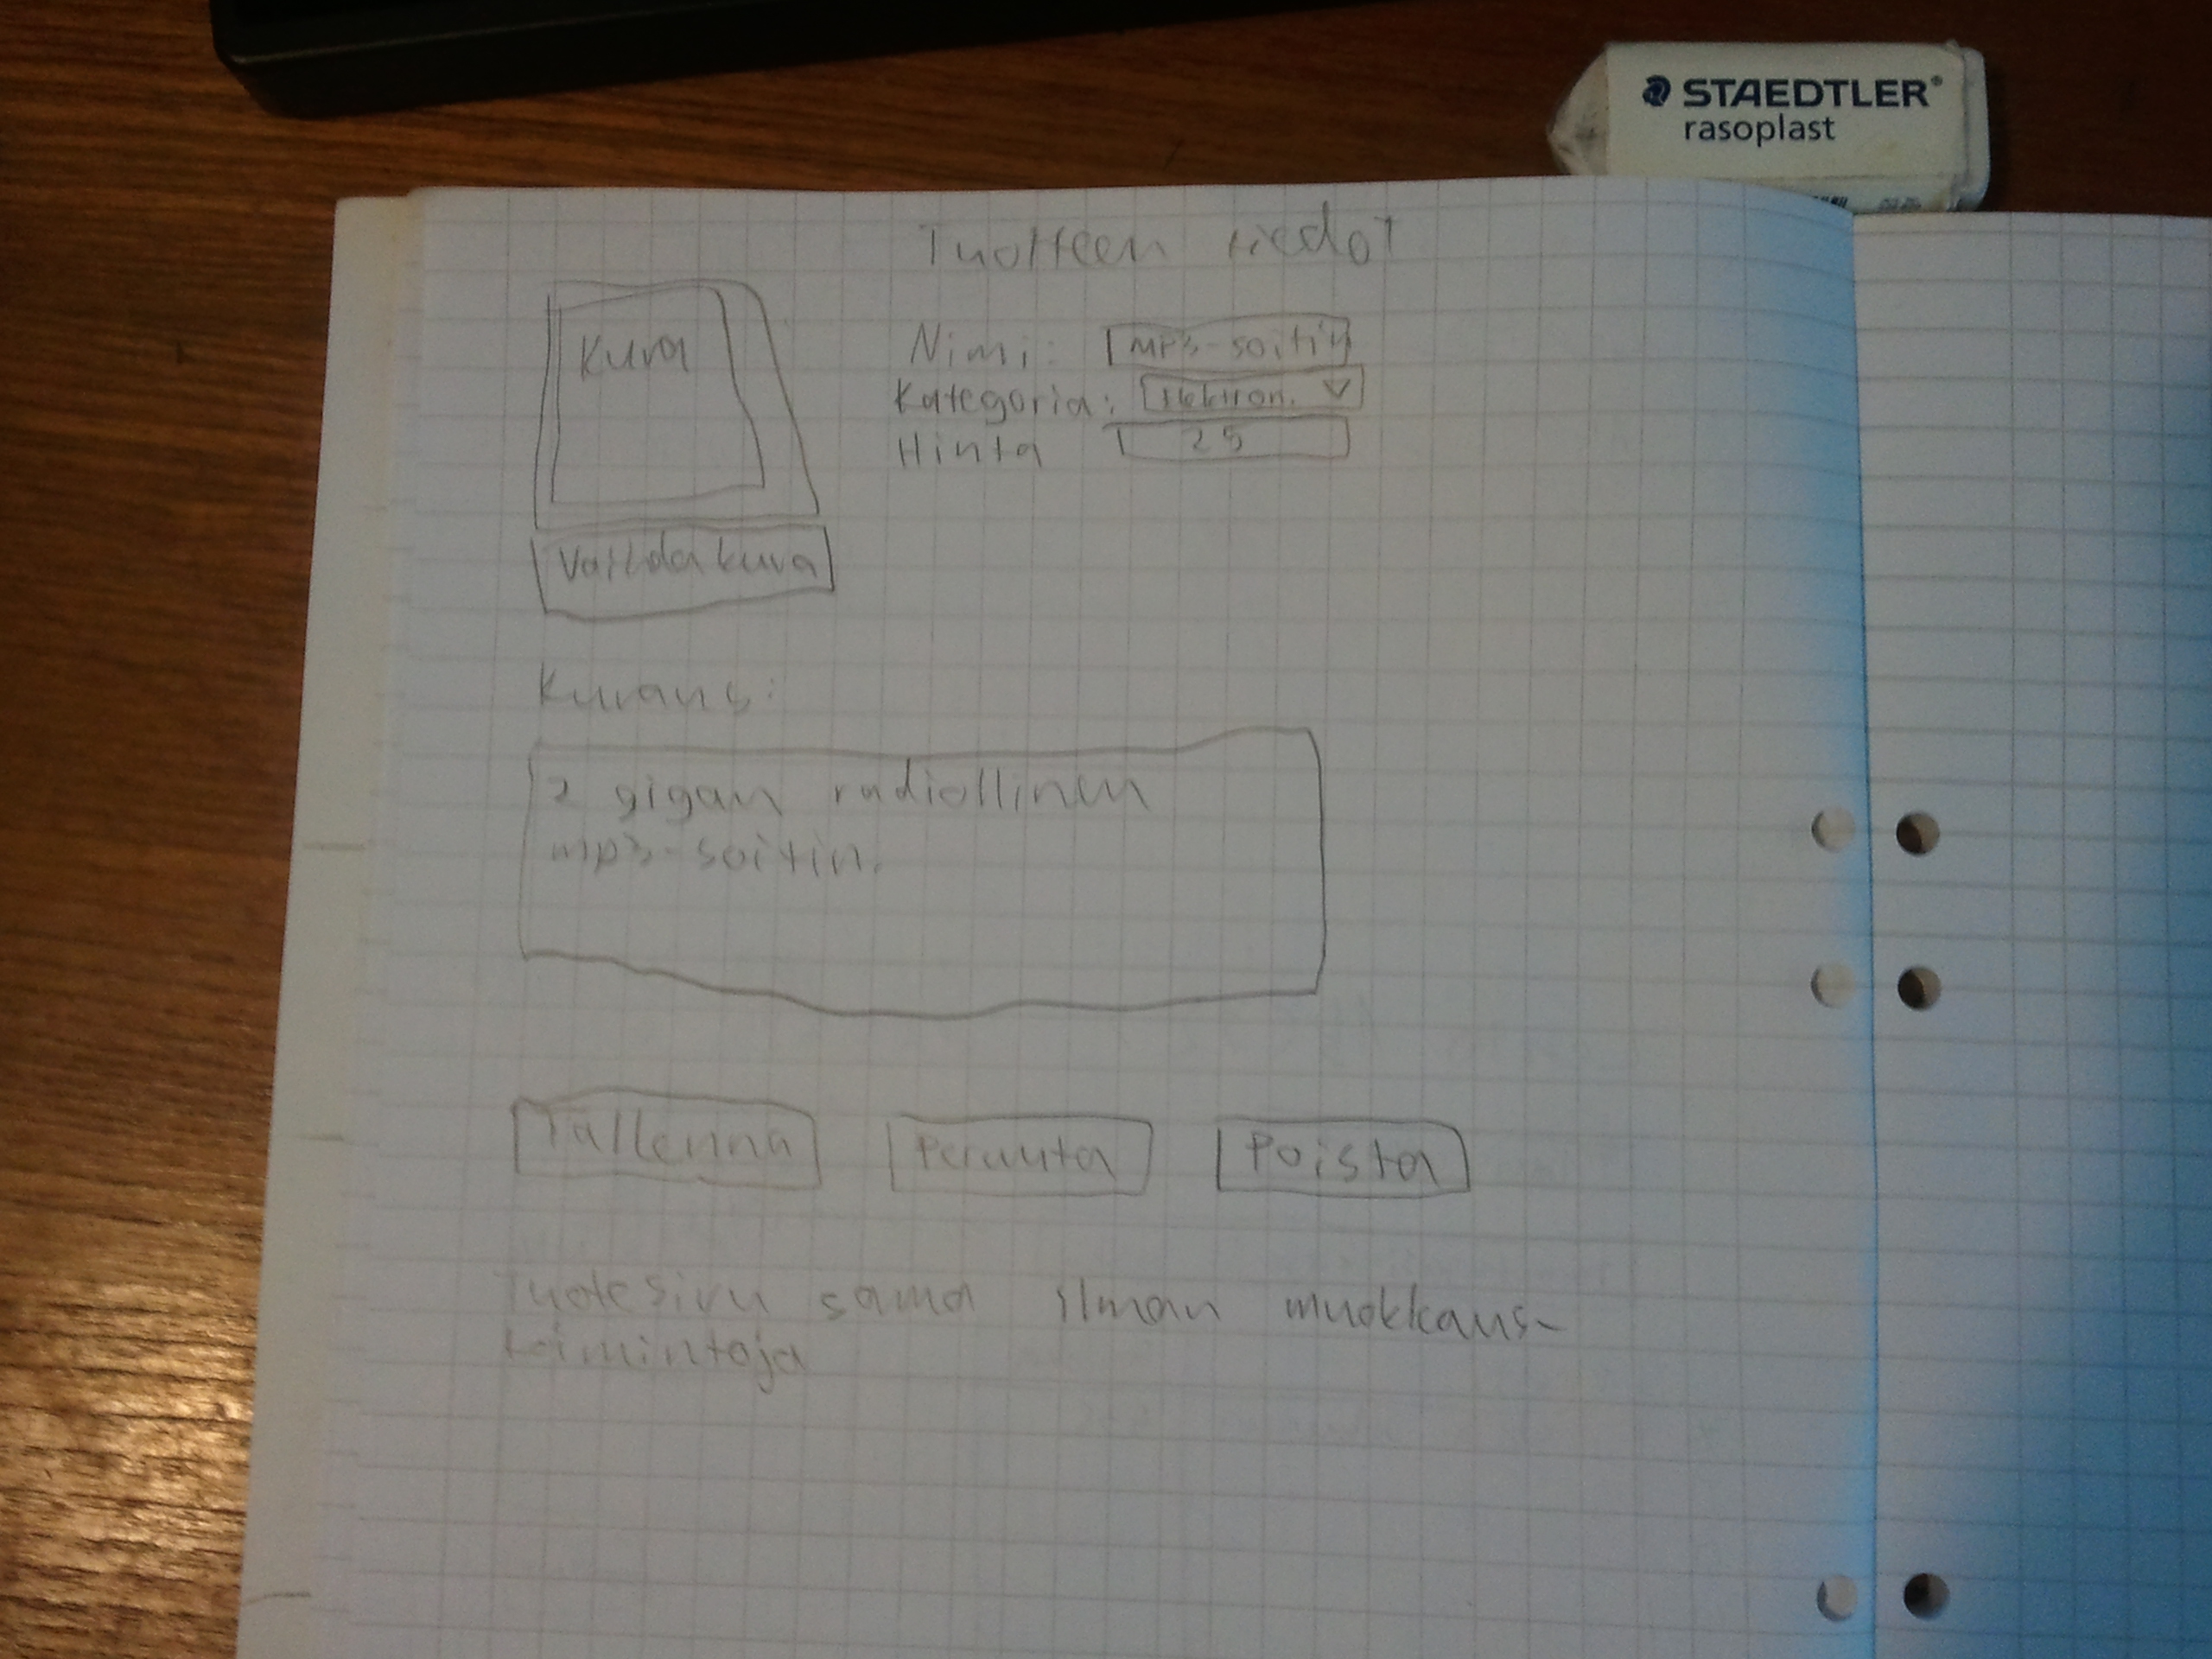 STAEDTLER®
rasoplast
Tuotteen tiedot
Kuva
Nimi: MP3-soitin
Kategoria: elektron.
Hinta 25
Vaihda kuva
Kuvaus:
2 gigan radiollinen
mp3-soitin.
Tallenna Peruuta Poista
Tuotesivu sama ilman muokkaus-
toimintoja